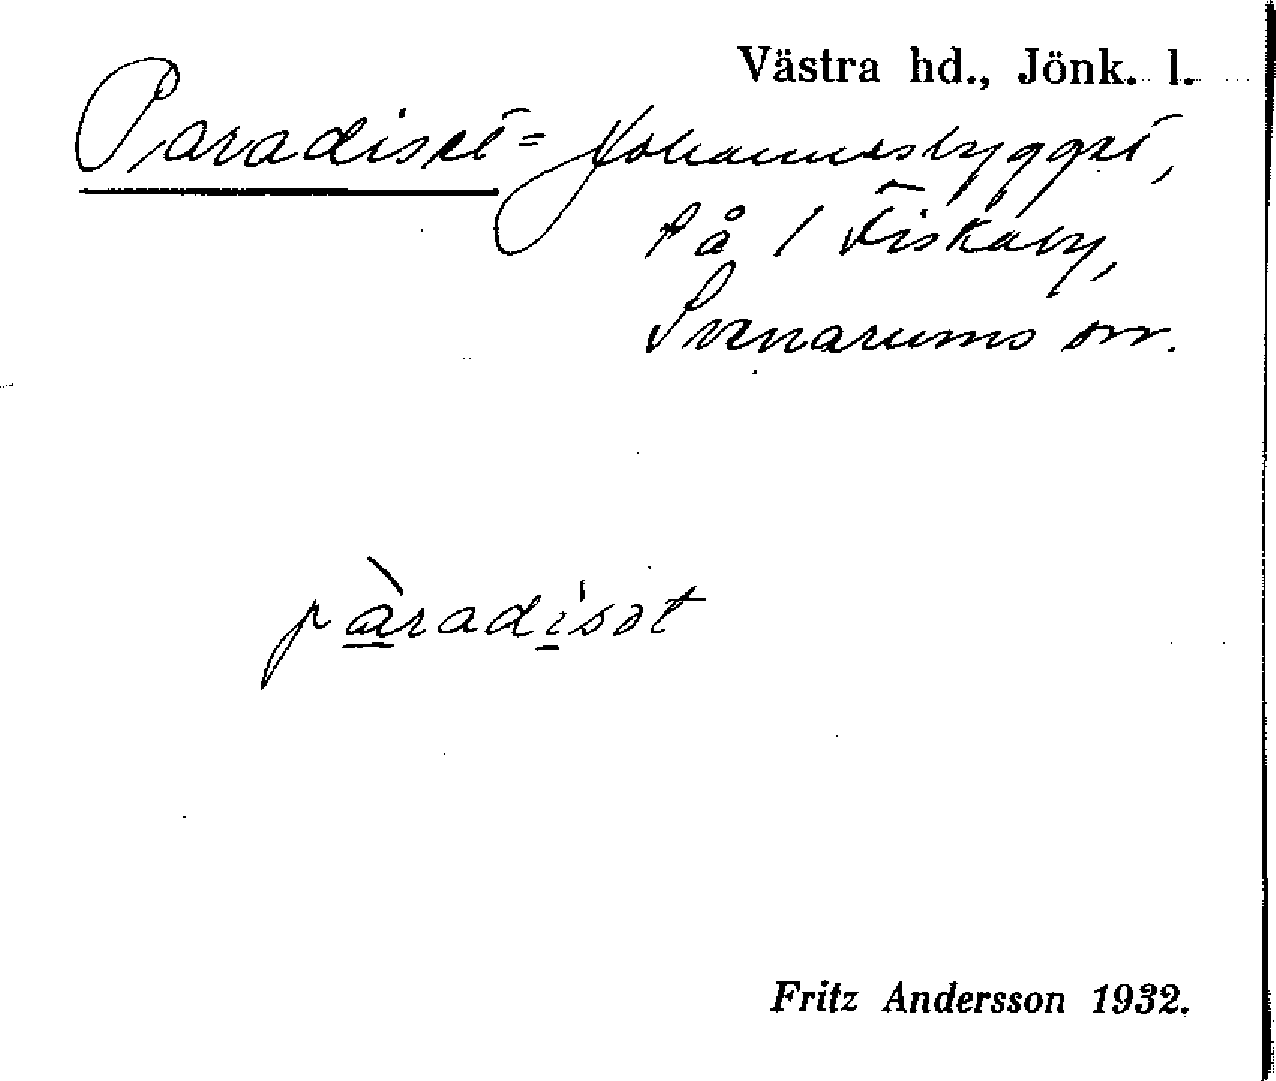 Västra hd., Jönk. l.
Paradiset = Johannesbygget,
på 1 Fiskaby,
Svenarums sn.
pàradísət
Fritz Andersson 1932.